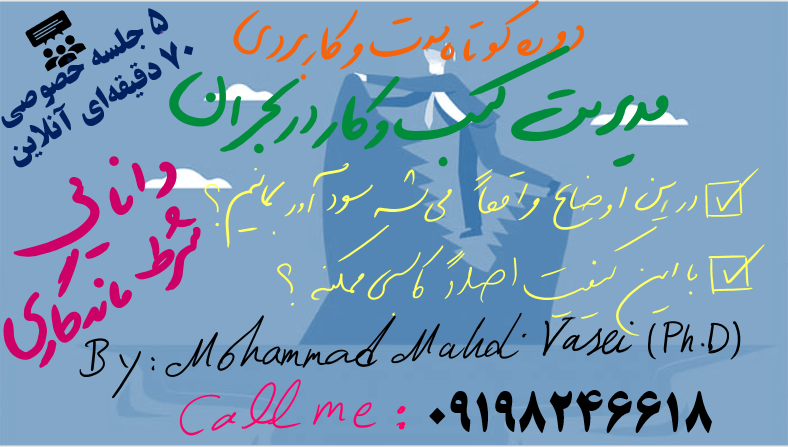 دوره کوتاه مدت و کاربردی
مدیریت کسب و کار در بحران
۵ جلسه خصوصی
۷۰ دقیقه‌ای آنلاین
دانایی
شرط ماندگاری
در این اوضاع واقعاً می‌شه سودآور بمانیم؟
با این کیفیت اصلاً کاسبی ممکنه؟
By: Mohammad Mahdi Vasei (Ph.D)
Call me: ۰۹۱۹۸۲۴۶۶۱۸